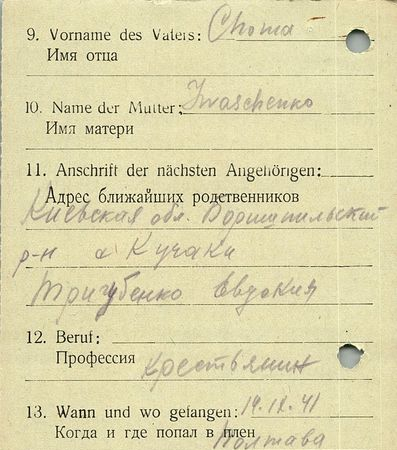 9. Vorname des Vaters: Choma
Имя отца
10. Name der Mutter: Iwaschenko
Имя матери
11. Anschrift der nächsten Angehörigen:
Адрес ближайших родственников
Киевская обл. Боришпильский
р-н с Кучаки
Тригубенко Евдокия
12. Beruf:
Профессия Крестьянин
13. Wann und wo gefangen: 19.IX.41
Когда и где попал в плен
Полтава